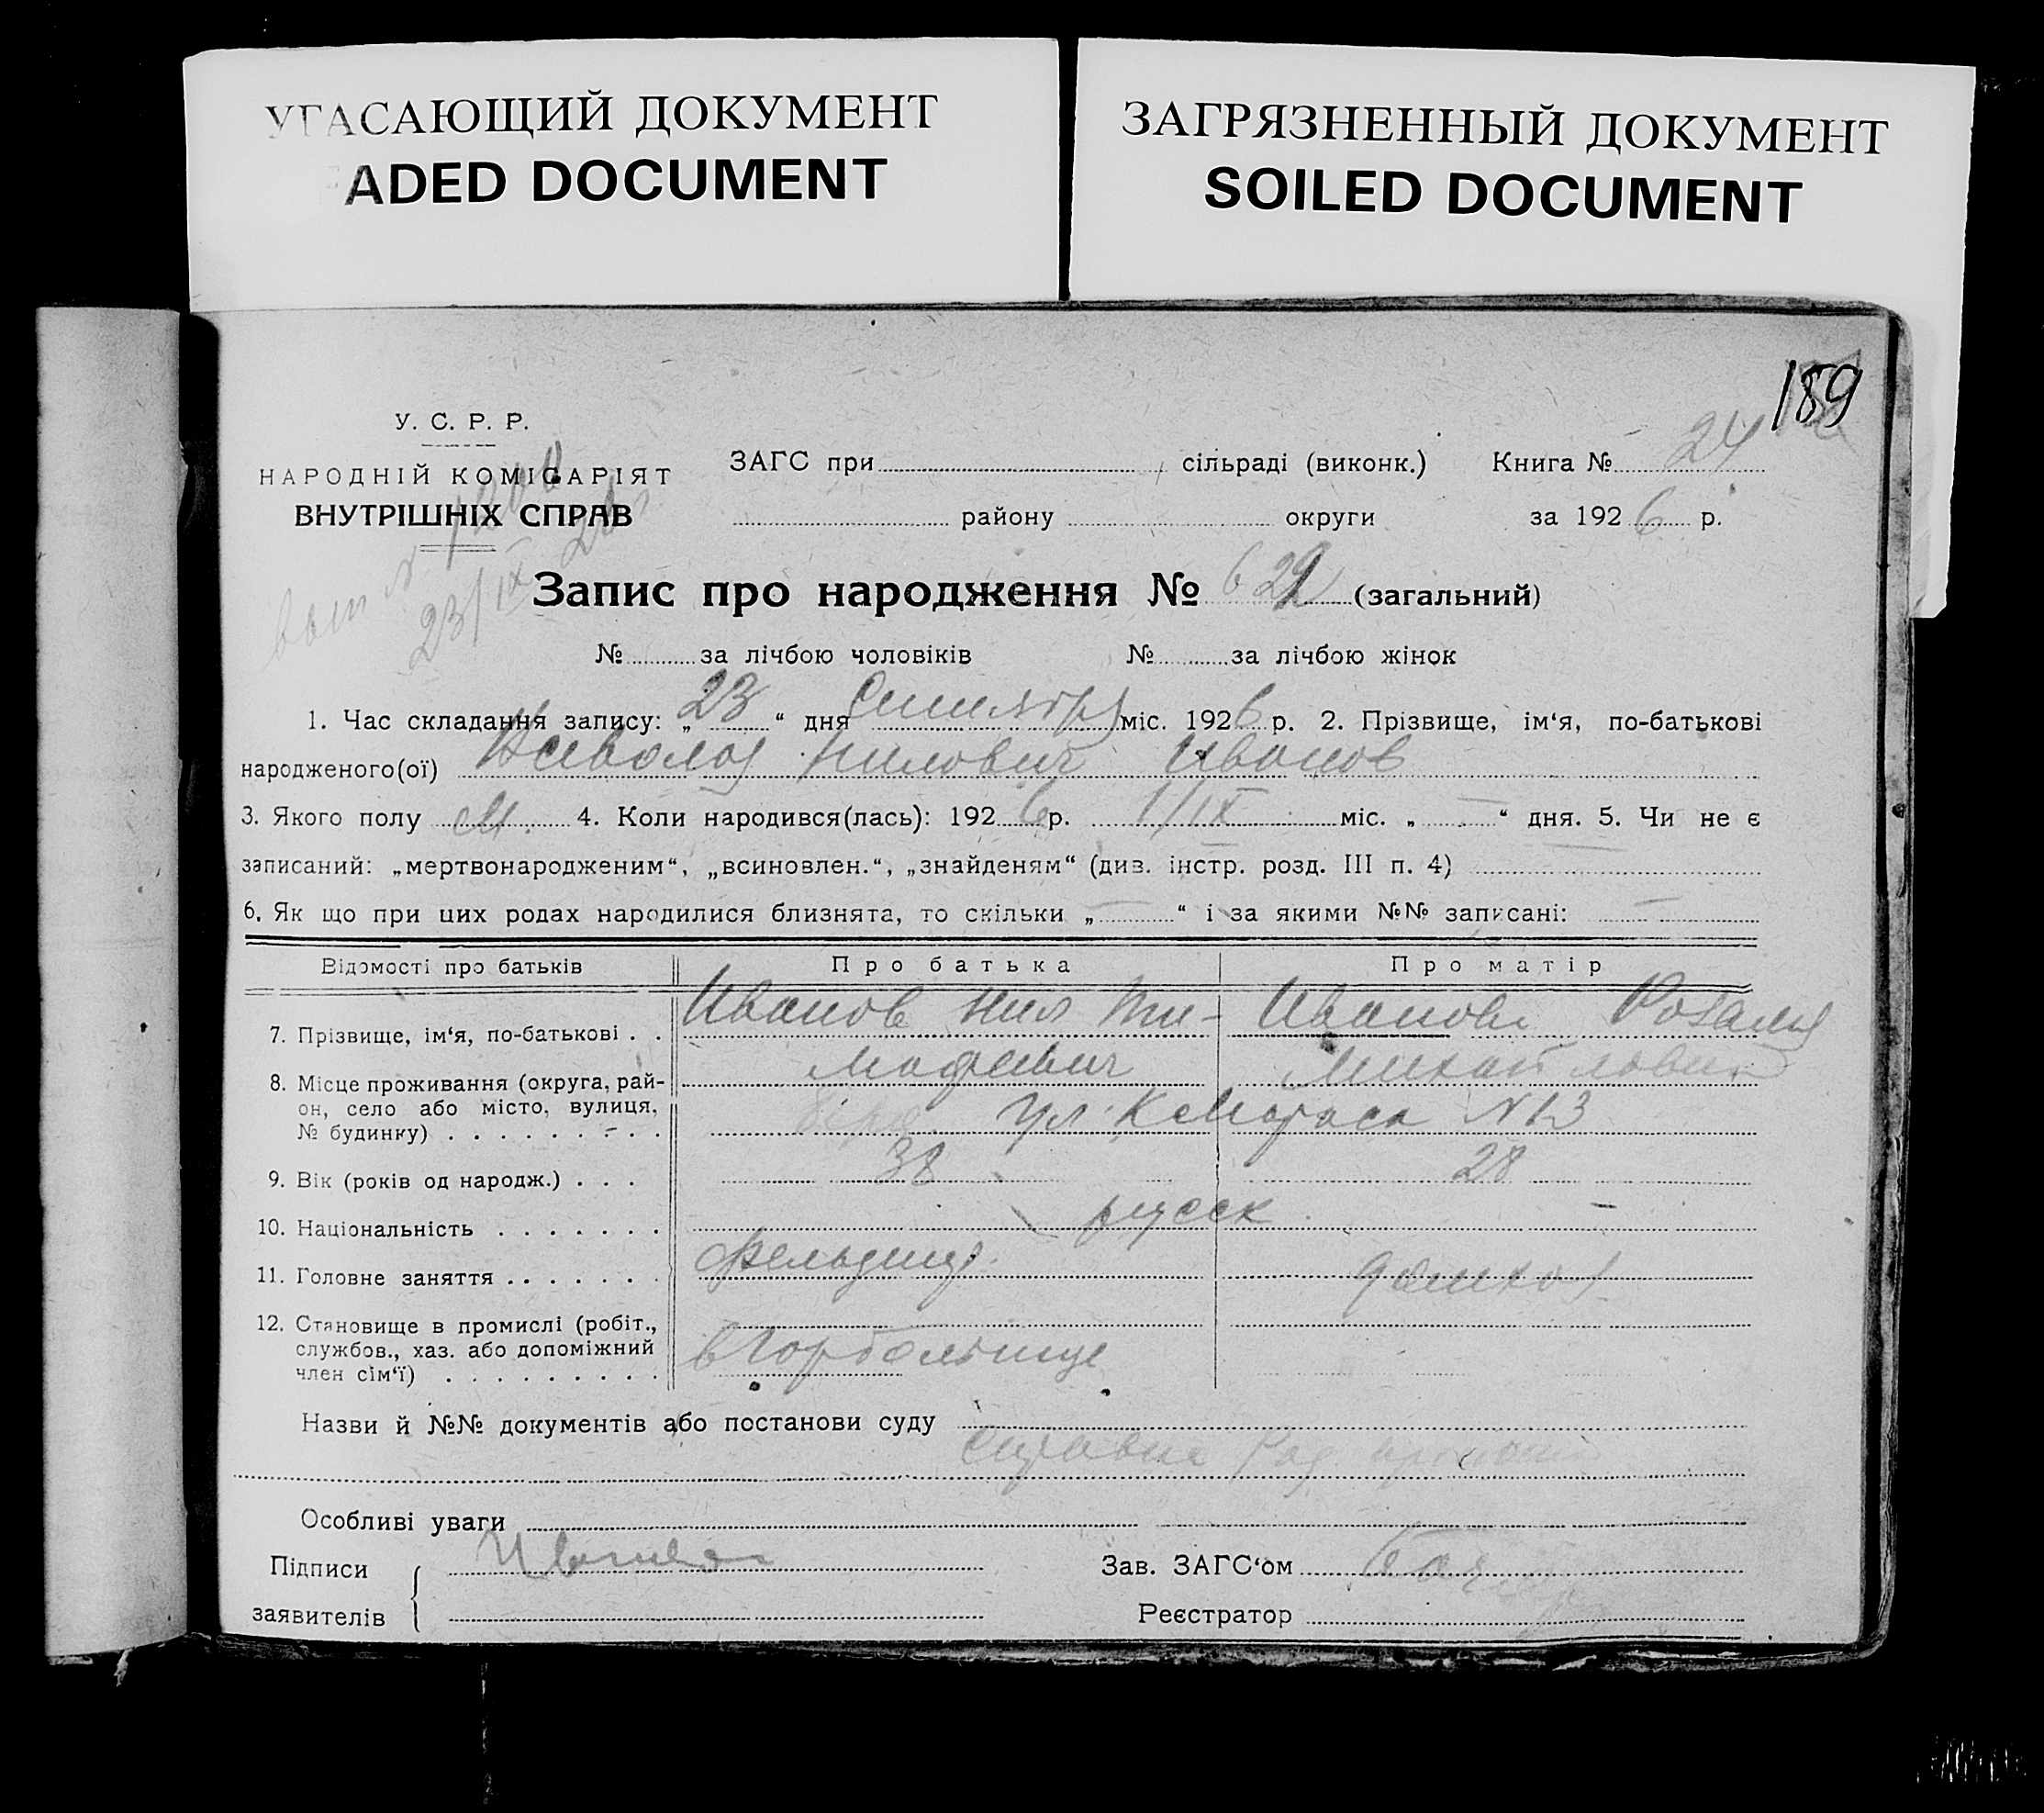 УГАСАЮЩИЙ ДОКУМЕНТ
ADED DOCUMENT
ЗАГРЯЗНЕННЫЙ ДОКУМЕНТ
SOILED DOCUMENT
189
У. С. Р. Р.
НАРОДНІЙ КОМІСАРІЯТ
ВНУТРІШНІХ СПРАВ
ЗАГС при сільраді (виконк.) Книга № 24
району округи за 1926 р.
23/IX
Запис про народження № 629 (загальний)
№ за лічбою чоловіків № за лічбою жінок
1. Час складання запису: „ 23 “ дня міс. 1926 р. 2. Прізвище, ім‘я, по-батькові
народженого(ої) Всеволод Нилович Иванов
3. Якого полу М. 4. Коли народився(лась): 1926 р. 1/IX міс. „ — “ дня. 5. Чи не є
записаний: „мертвонародженим“, „всиновлен.“, „знайденям“ (див. інстр. розд. III п. 4) —
6. Як що при цих родах народилися близнята, то скільки „ — “ і за якими №№ записані: —
Відомості про батьків Про батька Про матір
7. Прізвище, ім‘я, по-батькові . . Иванов Нил Ти- Иванова Розалия
мофеевич Михайловна
8. Місце проживання (округа, рай-
он, село або місто, вулиця,
№ будинку) . . . . . . . . . ул. К Маркса N 13
9. Вік (років од народж.) . . . 38 28
10. Національність . . . . . . . русск —
11. Головне заняття . . . . . . . Фельдшер. домхоз
12. Становище в промислі (робіт.,
службов., хаз. або допоміжний
член сім‘ї) . . . . . . . . . в Горбольнице
Назви й №№ документів або постанови суду
справка Род.
Особливі уваги
Підписи
заявителів
Иванов
Зав. ЗАГС‘ом
Реєстратор